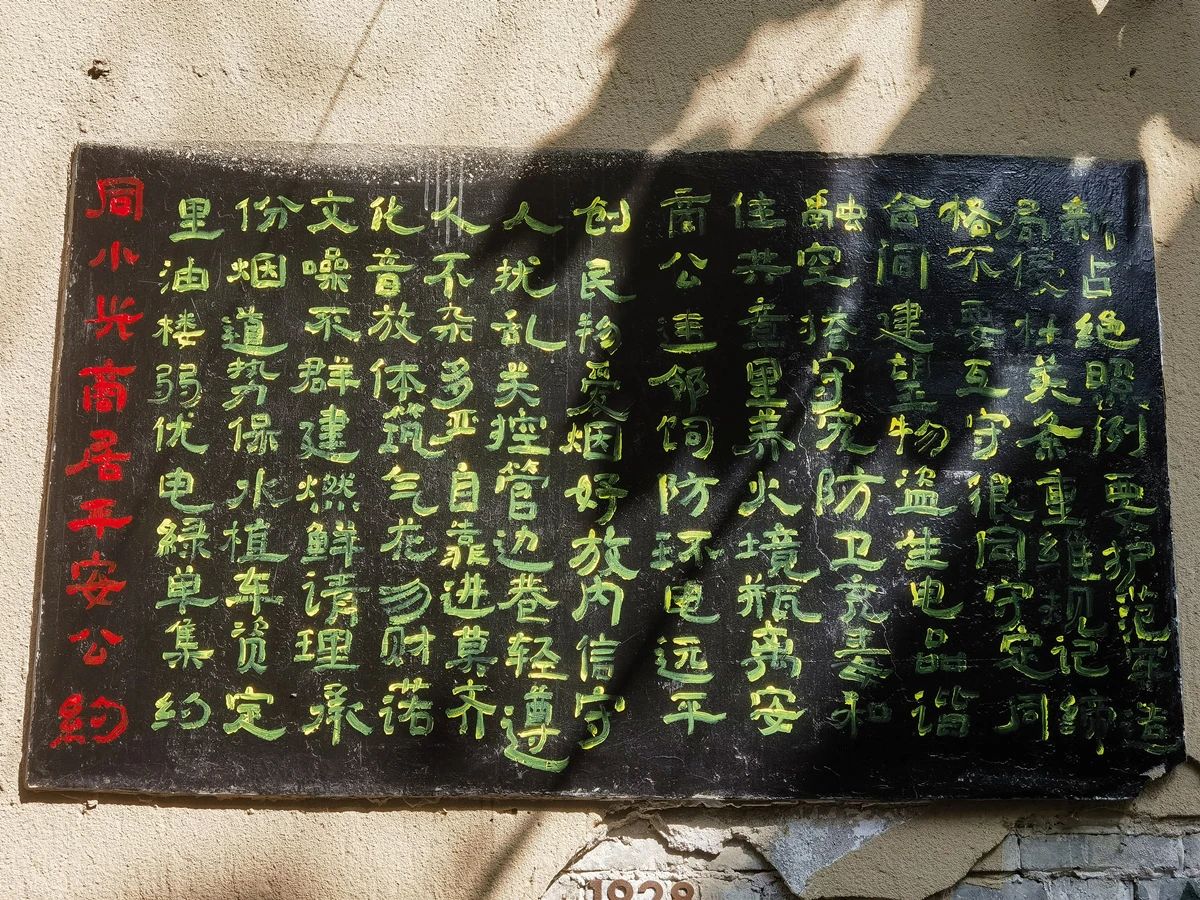 同小兴商居平安公約
里份文化人人创 商住融合格局新
油烟噪音不扰民 公共空间不侵占
楼道不放杂乱物 违章搭建要杜绝
弱势群体多关爱 邻里守望互关照
优保建筑严控烟 饲养宠物守条例
电水燃气自管好 防火防盗很重要
緑植鲜花靠边放 环境卫生同维护
单车请勿进巷内 电瓶充电守规范
集资理财莫轻信 远离毒品定记牢
约定承诺齐遵守 平安和谐同缔造
1928